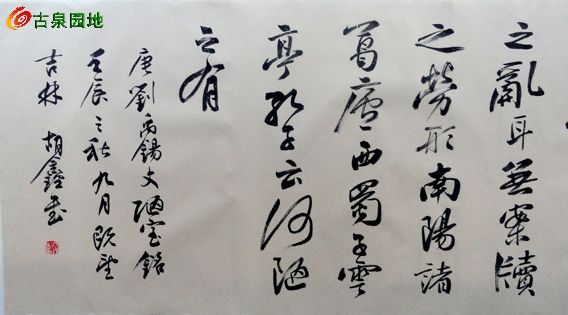 古泉园地
之亂耳無案牘
之勞形南陽諸
葛廬西蜀子雲
亭孔子云何陋
之有
唐劉禹錫文陋室銘
壬辰之秋九月既望
吉林 胡鑫書